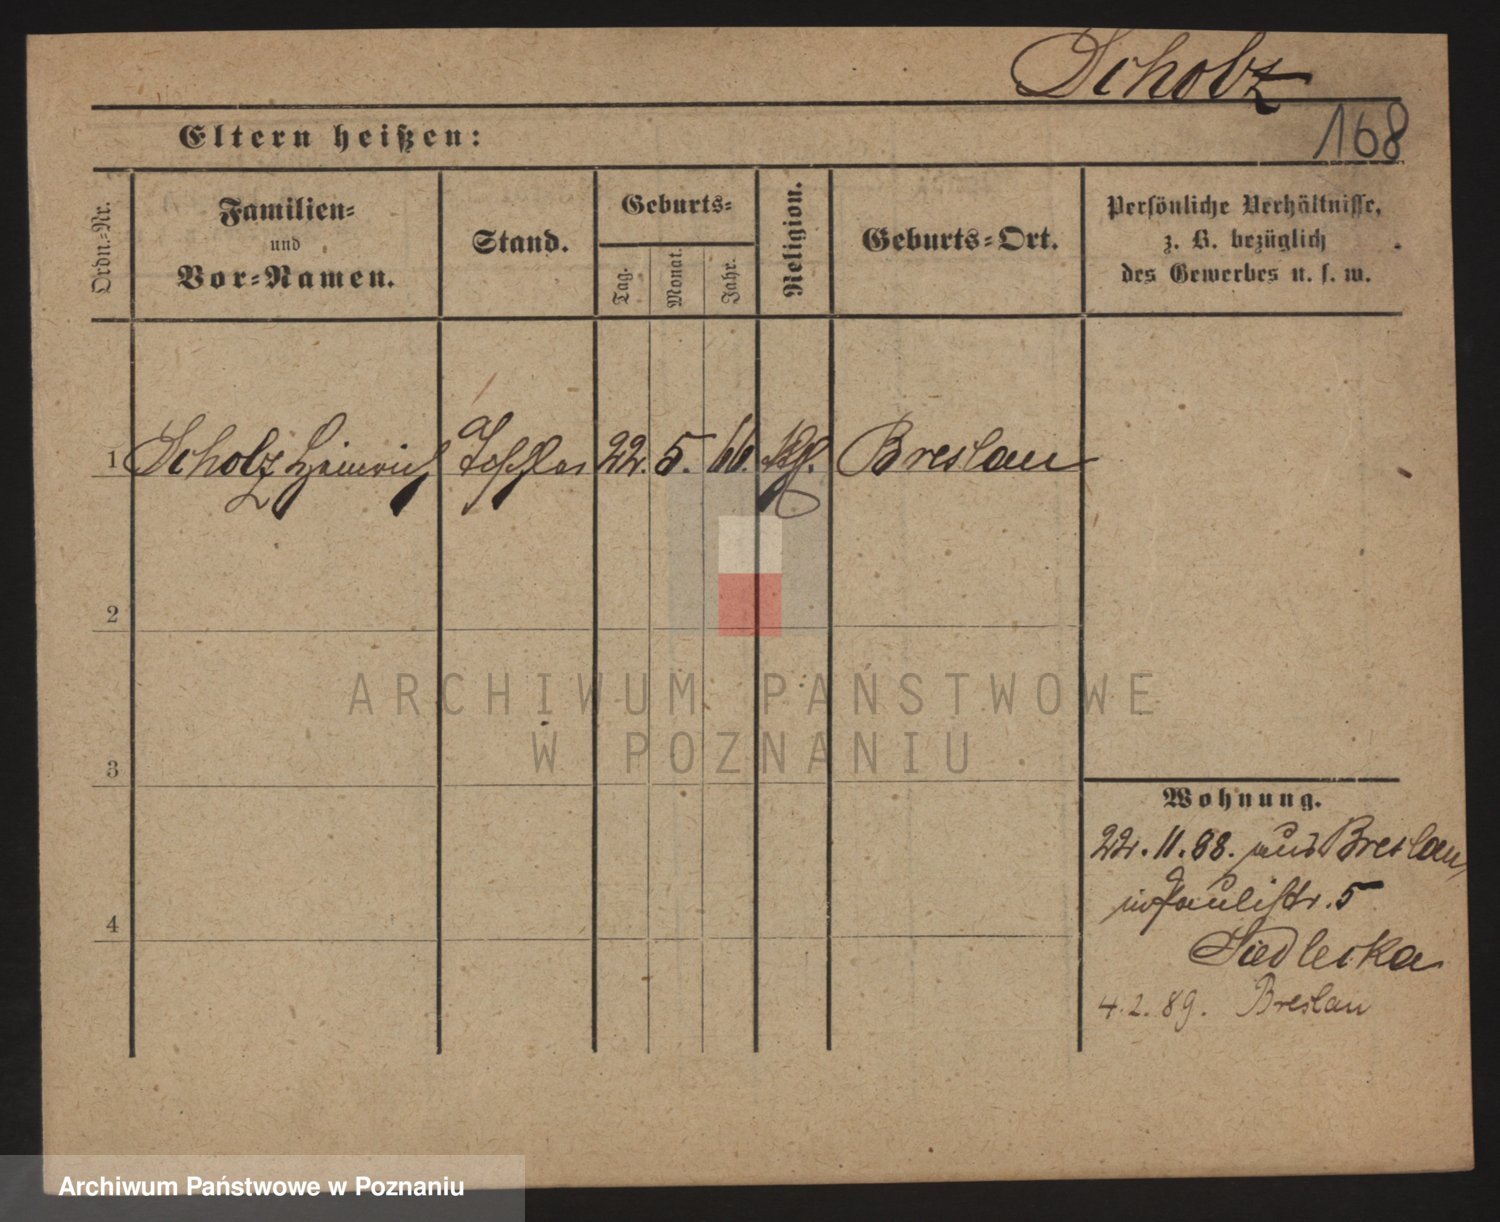 Scholz
168
Eltern heißen:
Ordn.-Nr.
Familien-
und
Vor-Namen.
Stand.
Geburts-
Tag.
Monat.
Jahr.
Religion.
Geburts-Ort.
Persönliche Verhältnisse,
z. B. bezüglich
des Gewerbes u. s. w.
1 Scholz Heinrich 22. 5. 66. Breslau
2
3
4
Wohnung.
22. 11. 88. aus Breslau,
Paulistr. 5
Siedlecka
4. 2. 89. Breslau
ARCHIWUM PAŃSTWOWE
W POZNANIU
Archiwum Państwowe w Poznaniu